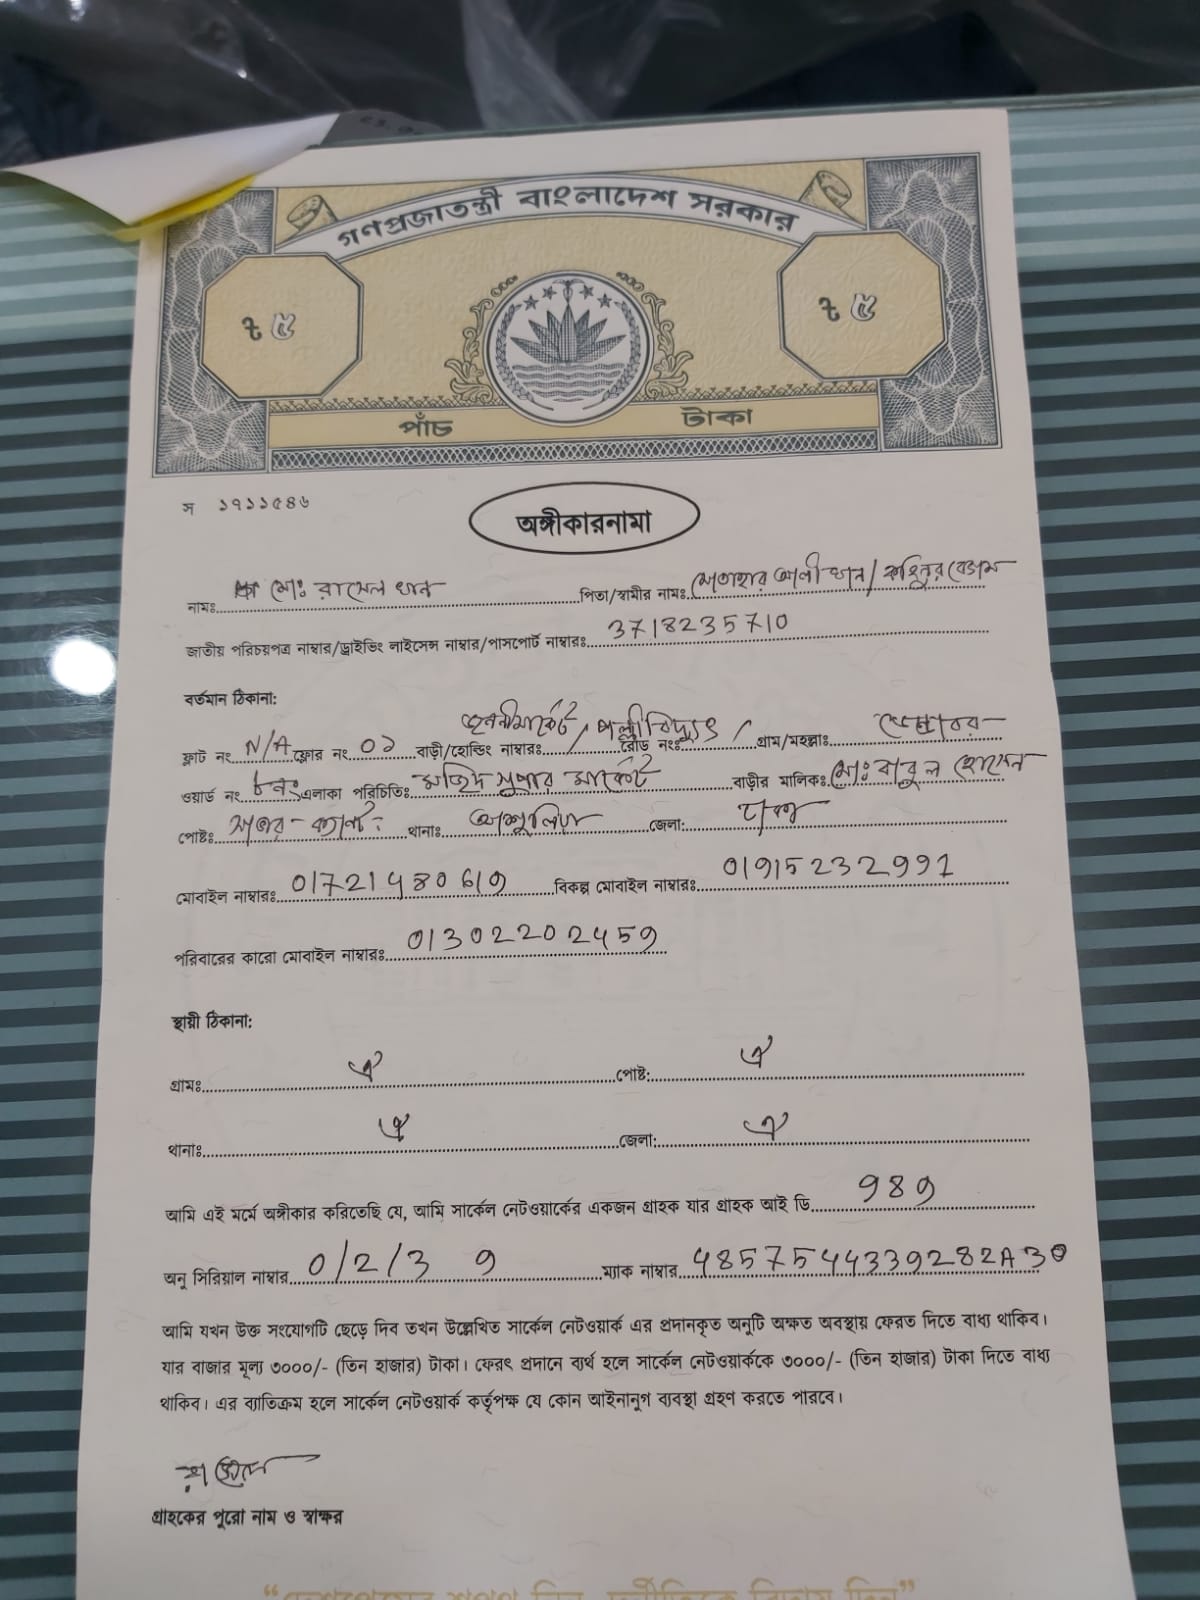 গণপ্রজাতন্ত্রী বাংলাদেশ সরকার
৳ ৫ ৳ ৫
পাঁচ টাকা
স ১৭১১৫৪৬
অঙ্গীকারনামা
নামঃ মোঃ রাসেল খান পিতা/স্বামীর নামঃ মোতাহার আলী খান/ কহিনুর বেগম
জাতীয় পরিচয়পত্র নাম্বার/ড্রাইভিং লাইসেন্স নাম্বার/পাসপোর্ট নাম্বারঃ 3718235710
বর্তমান ঠিকানা:
ফ্লাট নং N/A ফ্লোর নং ০১ বাড়ী/হোল্ডিং নাম্বারঃ মার্কেট / রোড নংঃ পল্লীবিদ্যুৎ / গ্রাম/মহল্লাঃ
ওয়ার্ড নং ৮নং এলাকা পরিচিতিঃ মজিদ সুপার মার্কেট বাড়ীর মালিকঃ মোঃ বাবুল হোসেন
পোষ্টঃ সাভার-ক্যান্ট: থানাঃ আশুলিয়া জেলা: ঢাকা
মোবাইল নাম্বারঃ 01721480619 বিকল্প মোবাইল নাম্বারঃ 01915232991
পরিবারের কারো মোবাইল নাম্বারঃ 01302202459
স্থায়ী ঠিকানা:
গ্রামঃ ঐ পোষ্ট: ঐ
থানাঃ ঐ জেলা: ঐ
আমি এই মর্মে অঙ্গীকার করিতেছি যে, আমি সার্কেল নেটওয়ার্কের একজন গ্রাহক যার গ্রাহক আই ডি 989
অনু সিরিয়াল নাম্বার 0/2/3 9 ম্যাক নাম্বার 4857544339282A30
আমি যখন উক্ত সংযোগটি ছেড়ে দিব তখন উল্লেখিত সার্কেল নেটওয়ার্ক এর প্রদানকৃত অনুটি অক্ষত অবস্থায় ফেরত দিতে বাধ্য থাকিব।
যার বাজার মূল্য ৩০০০/- (তিন হাজার) টাকা। ফেরৎ প্রদানে ব্যর্থ হলে সার্কেল নেটওয়ার্ককে ৩০০০/- (তিন হাজার) টাকা দিতে বাধ্য
থাকিব। এর ব্যাতিক্রম হলে সার্কেল নেটওয়ার্ক কর্তৃপক্ষ যে কোন আইনানুগ ব্যবস্থা গ্রহণ করতে পারবে।
রাসেল
গ্রাহকের পুরো নাম ও স্বাক্ষর